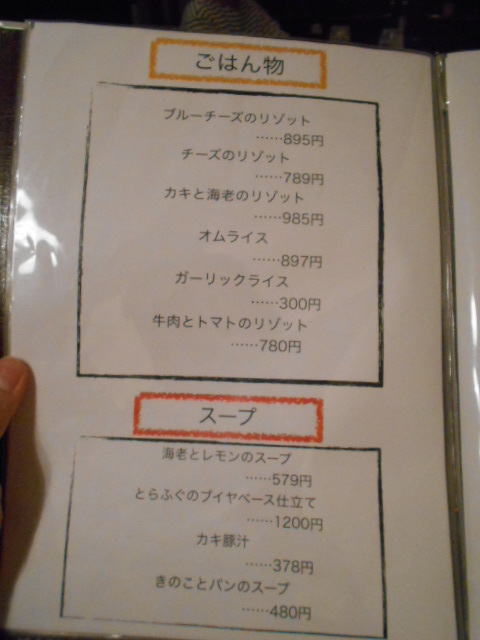 ごはん物
ブルーチーズのリゾット
……895円
チーズのリゾット
……789円
カキと海老のリゾット
……985円
オムライス
……897円
ガーリックライス
……300円
牛肉とトマトのリゾット
……780円
スープ
海老とレモンのスープ
……579円
とらふぐのブイヤベース仕立て
……1200円
カキ豚汁
……378円
きのことパンのスープ
……480円